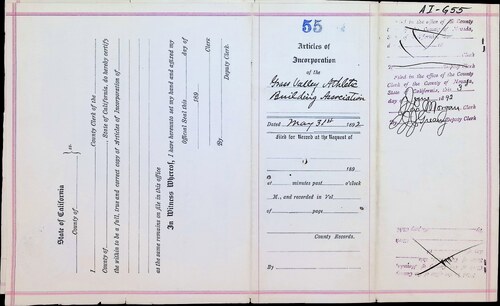 State of California
County of
ss
I County Clerk of the
County of State of California, do hereby certify
the within to be a full, true and correct copy of Articles of Incorporation of
as the same remains on file in this office
In Witness Whereof, I have hereunto set my hand and affixed my
Official Seal this day of
189
Clerk
By Deputy Clerk.
55
Articles of
Incorporation
of the
Grass Valley Athletic
Building Association
Dated May 31st 1892
Filed for Record at the Request of
189
at minutes past o'clock
M., and recorded in Vol.
of page
County Records.
By
AI-G55
Filed in the office of the County
Clerk of the County of Nevada,
State of California, this 3rd
day of June 1892
Morgan
Deputy Clerk